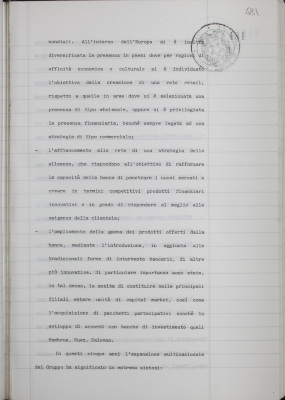 mondiali. All'interno dell'Europa si è inoltre
diversificata la presenza in paesi dove per ragioni di
affinità economica e culturale si è individuato
l'obiettivo della creazione di una rete retail,
rispetto a quelle in aree dove si è selezionata una
presenza di tipo wholesale, oppure si è privilegiata
la presenza finanziaria, benchè sempre legata ad una
strategia di tipo commerciale;
- l'affiancamento alla rete di una strategia delle
alleanze, che rispondono all'obiettivo di rafforzare
la capacità della banca di penetrare i nuovi mercati e
creare in termini competitivi prodotti finanziari
innovativi e in grado di rispondere al meglio alle
esigenze della clientela;
- l'ampliamento della gamma dei prodotti offerti dalla
banca, mediante l'introduzione, in aggiunta alle
tradizionali forme di intervento bancario, di altre
più innovative. Di particolare importanza sono state,
in tal senso, la scelta di costituire nelle principali
filiali estere unità di capital market, così come
l'acquisizione di pacchetti partecipativi nonchè lo
sviluppo di accordi con banche di investimento quali
In questi cinque anni l'espansione multinazionale
del Gruppo ha significato in estrema sintesi: